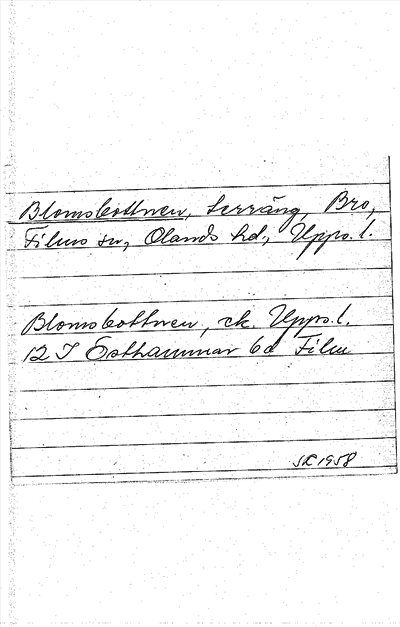 Blomsbottnen, terräng, Bro,
Films sn, Olands hd., Upps. l.
Blomsbottnen, ek. Upps. l.
12 I Östhammar 6d Film
SK 1958